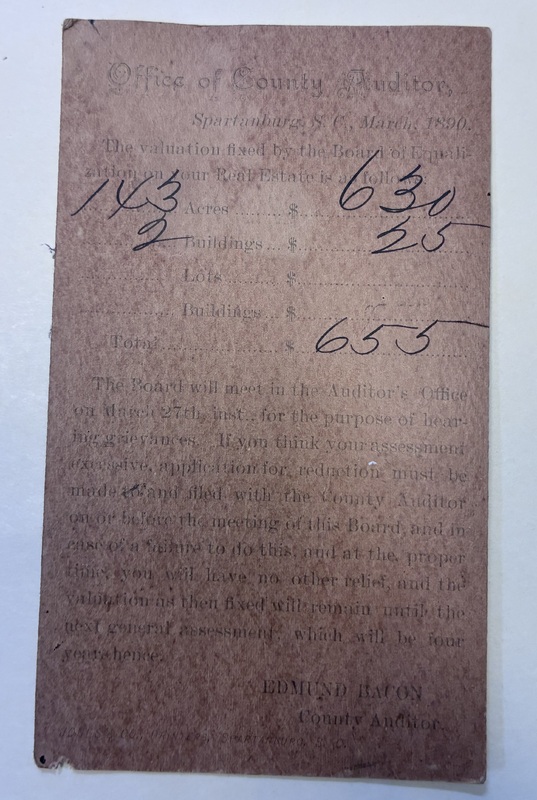 Office of County Auditor,
Spartanburg, S. C., March, 1890.
The valuation fixed by the Board of Equali-
zation on your Real Estate is as follows
143 Acres ........ $ 630
2 Buildings ... $ 25
Lots ........ $
Buildings ... $
Total ........ $ 655
The Board will meet in the Auditor's Office
on March 27th, inst., for the purpose of hear-
ing grievances. If you think your assessment
excessive, application for reduction must be
made to and filed with the County Auditor
on or before the meeting of this Board, and in
case of a failure to do this, and at the proper
time, you will have no other relief, and the
valuation as then fixed will remain until the
next general assessment, which will be four
years hence.
EDMUND BACON
County Auditor.